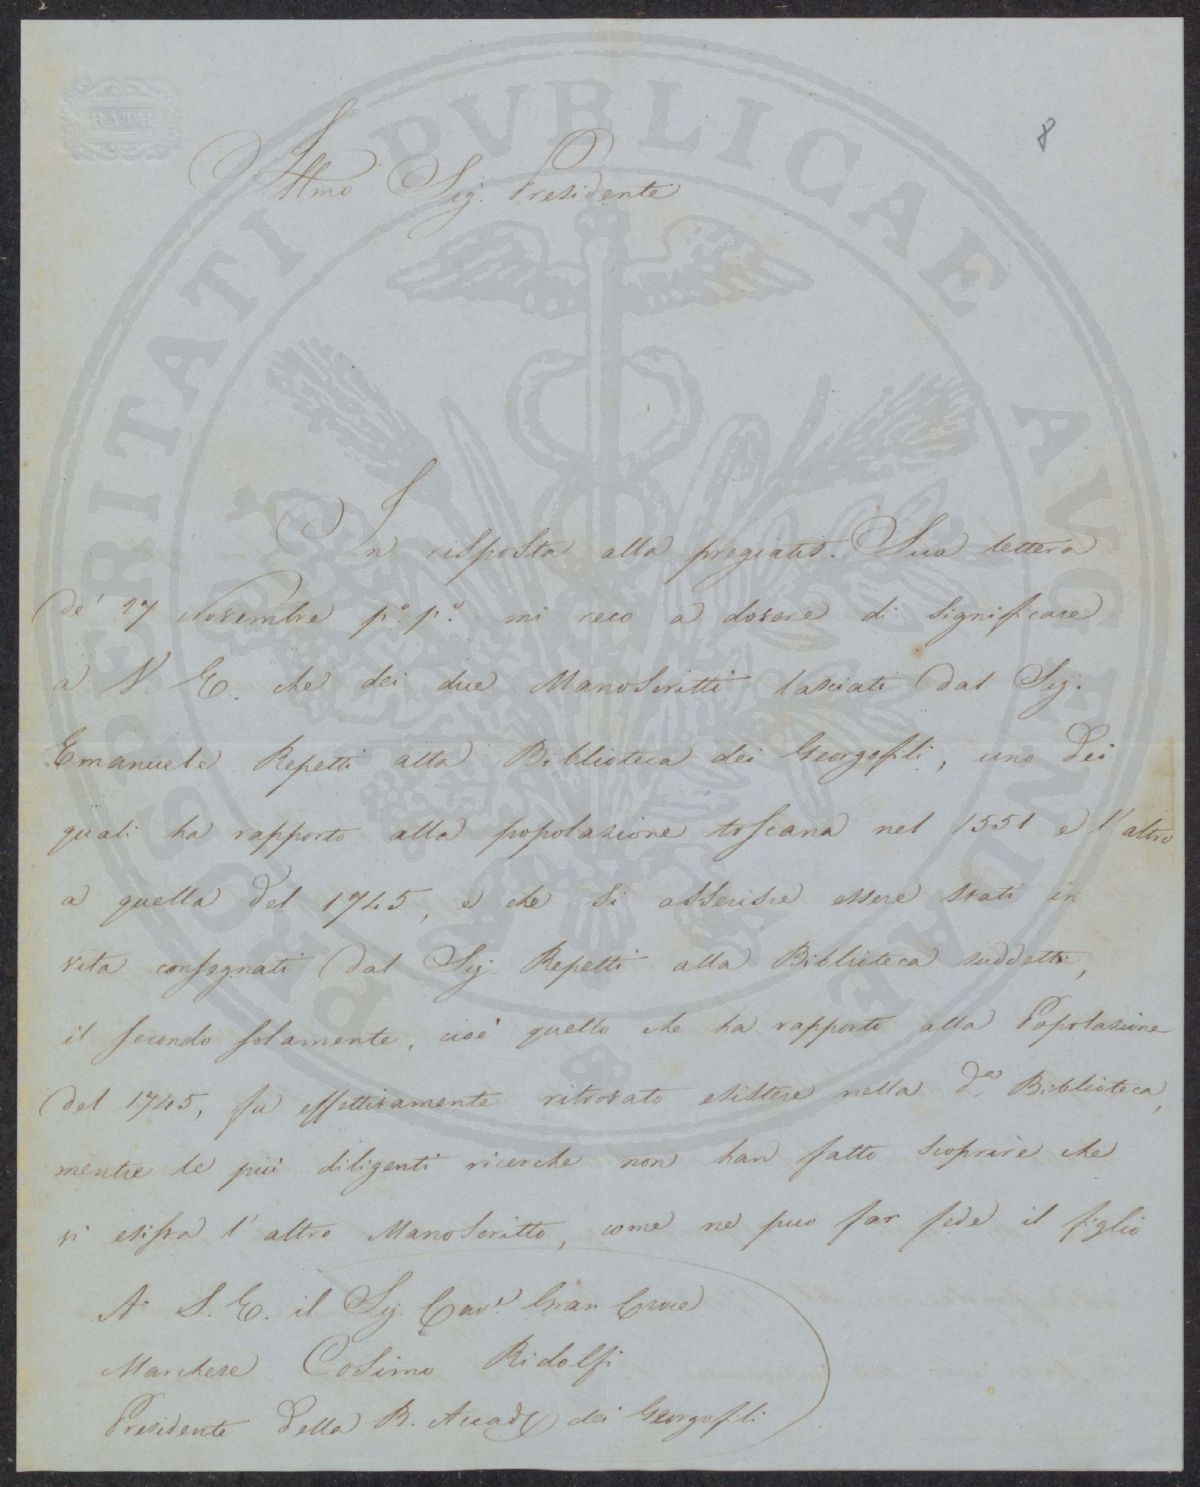 BATH
PROSPERITATI PVBLICAE AVGENDAE
8
Illmo Sig. Presidente
In risposta alla pregiatis. Sua lettera
de' 27 Novembre p.º p.º mi reco a dovere di significare
a V. E. che dei due Manoscritti lasciati dal Sig.
Emanuele Repetti alla Biblioteca dei Georgofili, uno dei
quali ha rapporto alla popolazione toscana nel 1551 e l'altro
a quella del 1745, e che si asserisce essere stati in
vita consegnati dal Sig. Repetti alla Biblioteca suddetta,
il secondo solamente, cioè quello che ha rapporto alla Popolazione
del 1745, fu effettivamente ritrovato esistere nella d.ª Biblioteca,
mentre le più diligenti ricerche non han fatto scoprire che
vi esista l'altro Manoscritto, come ne può far fede il figlio
A S. E. il Sig. Cav.e Gran Croce
Marchese Cosimo Ridolfi
Presidente della R. Accad. dei Georgofili